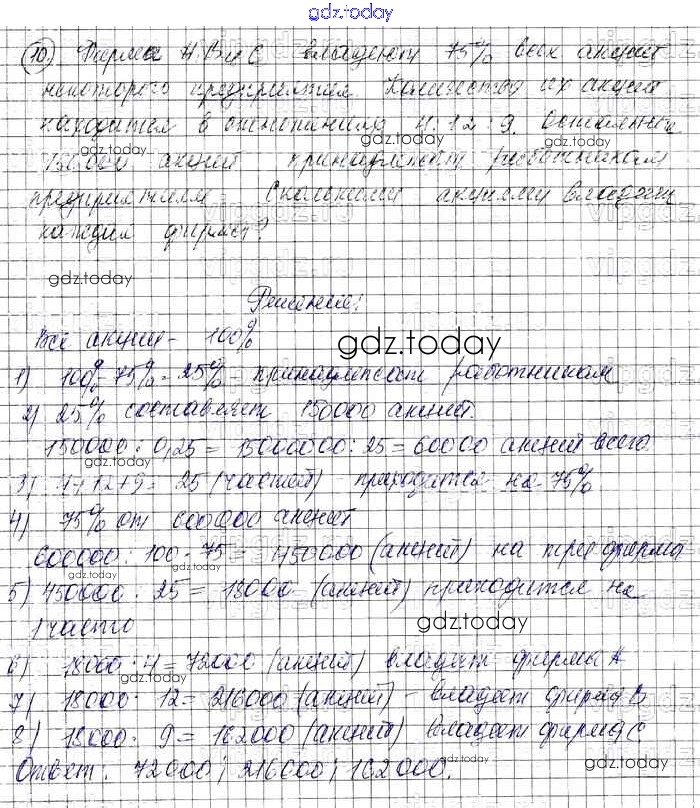 gdz.today
10) Фирмы А, В и С владеют 75% всех акций
некоторого предприятия. Количество их акций
находится в отношении 4:12:9. Остальные
150 000 акций принадлежат работникам
предприятия. Сколькими акциями владеет
каждая фирма?
gdz.today
Решение:
Все акции - 100%
gdz.today
1) 100% - 75% = 25% - принадлежат работникам
2) 25% составляет 150000 акций.
150000 : 0,25 = 15000000 : 25 = 60000 акций всего
3) 4+12+9 = 25 (частей) - приходится на 75%
4) 75% от 600000 акций
600000 : 100 · 75 = 450000 (акций) на три фирмы
5) 450000 : 25 = 18000 (акций) приходится на
1 часть
gdz.today
6) 18000 · 4 = 72000 (акций) владеет фирмы А
7) 18000 · 12 = 216000 (акций) - владеет фирма В
8) 18000 · 9 = 162000 (акций) владеет фирма С
Ответ: 72000; 216000; 162000.
gdz.today